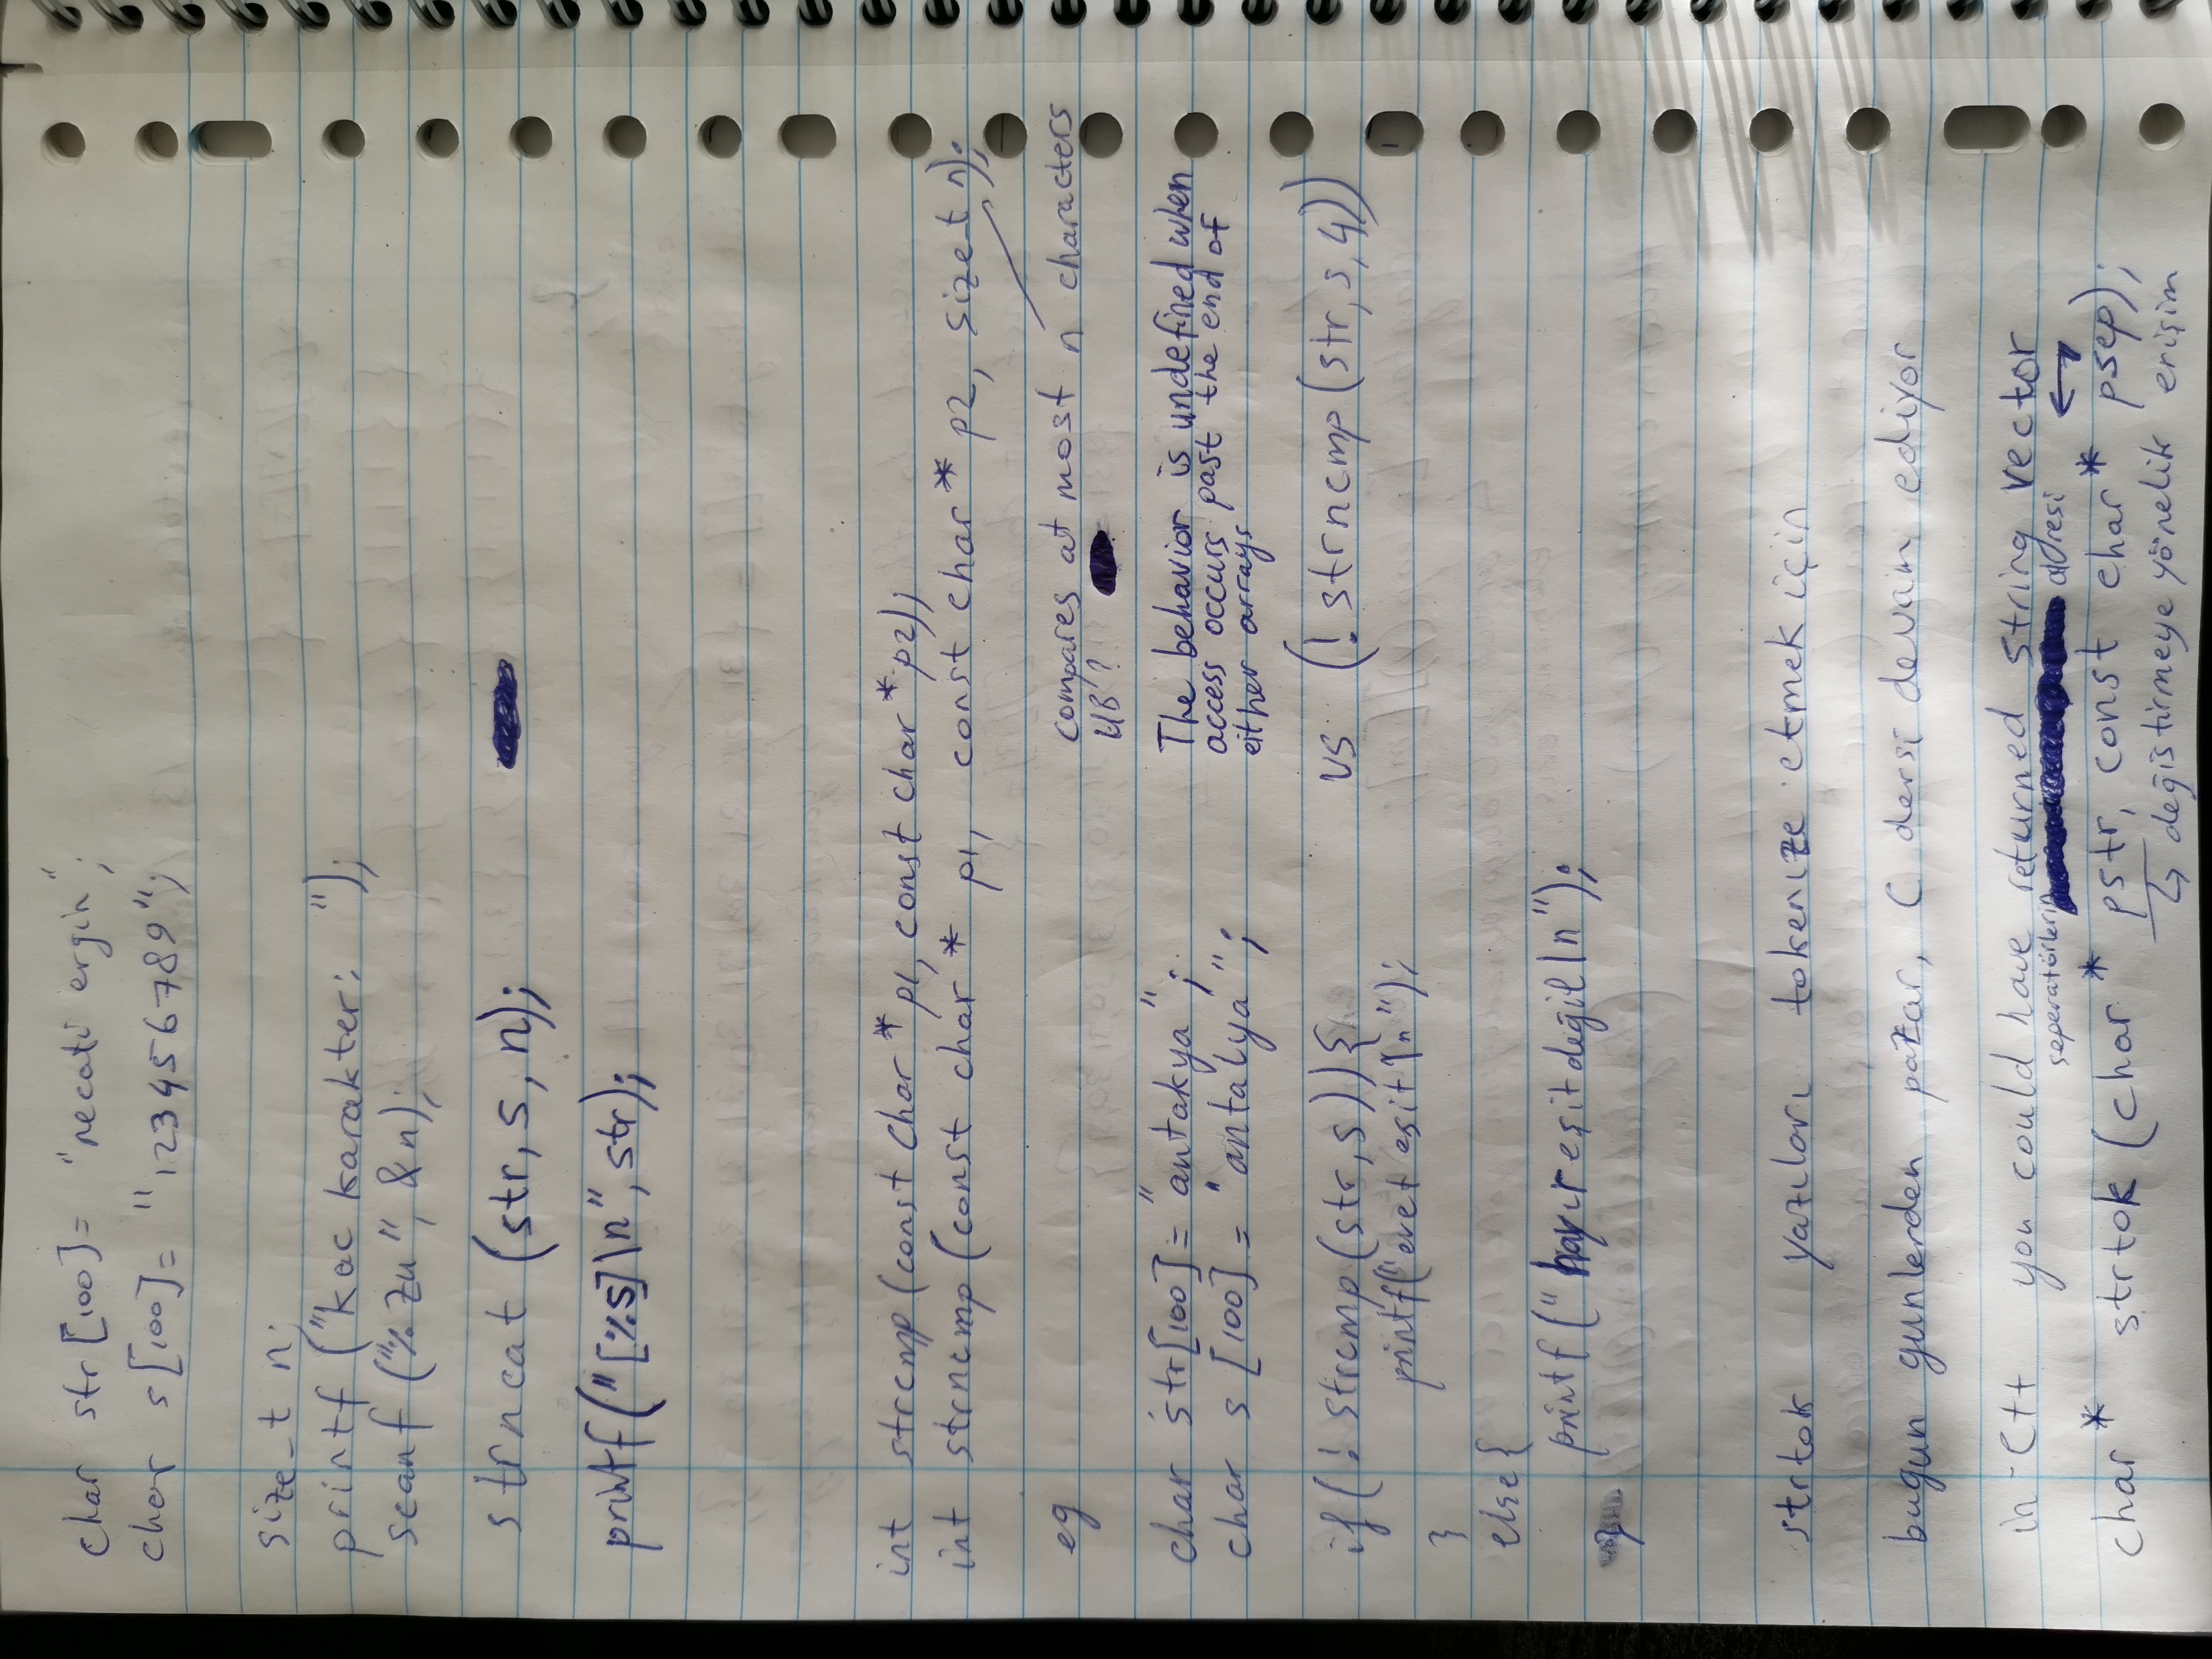 char str [100] = "necati ergin";
char s [100] = "123456789";
size_t n;
printf ("kac karakter: ");
scanf ("%zu", &n);
strncat (str, s, n);
printf ("[%s]\n", str);
int strcmp (const char * p1, const char * p2);
int strncmp (const char * p1, const char * p2, size_t n);
eg
compares at most n characters
UB?
char str[100] = "antakya";
char s [100] = "antalya";
The behavior is undefined when
access occurs past the end of
either arrays
if (! strcmp (str, s)) {
vs (! strncmp (str, s, 4))
printf("evet eşit \n");
}
else {
printf (" hayır eşit değil \n");
}
strtok yazıları tokenıze etmek için
bugun gunlerden pazar, C dersi devam ediyor
in C++ you could have returned string vector
seperatörlerin adresi ↔
char * strtok (char * pstr, const char * psep);
↳ değiştirmeye yönelik erişim